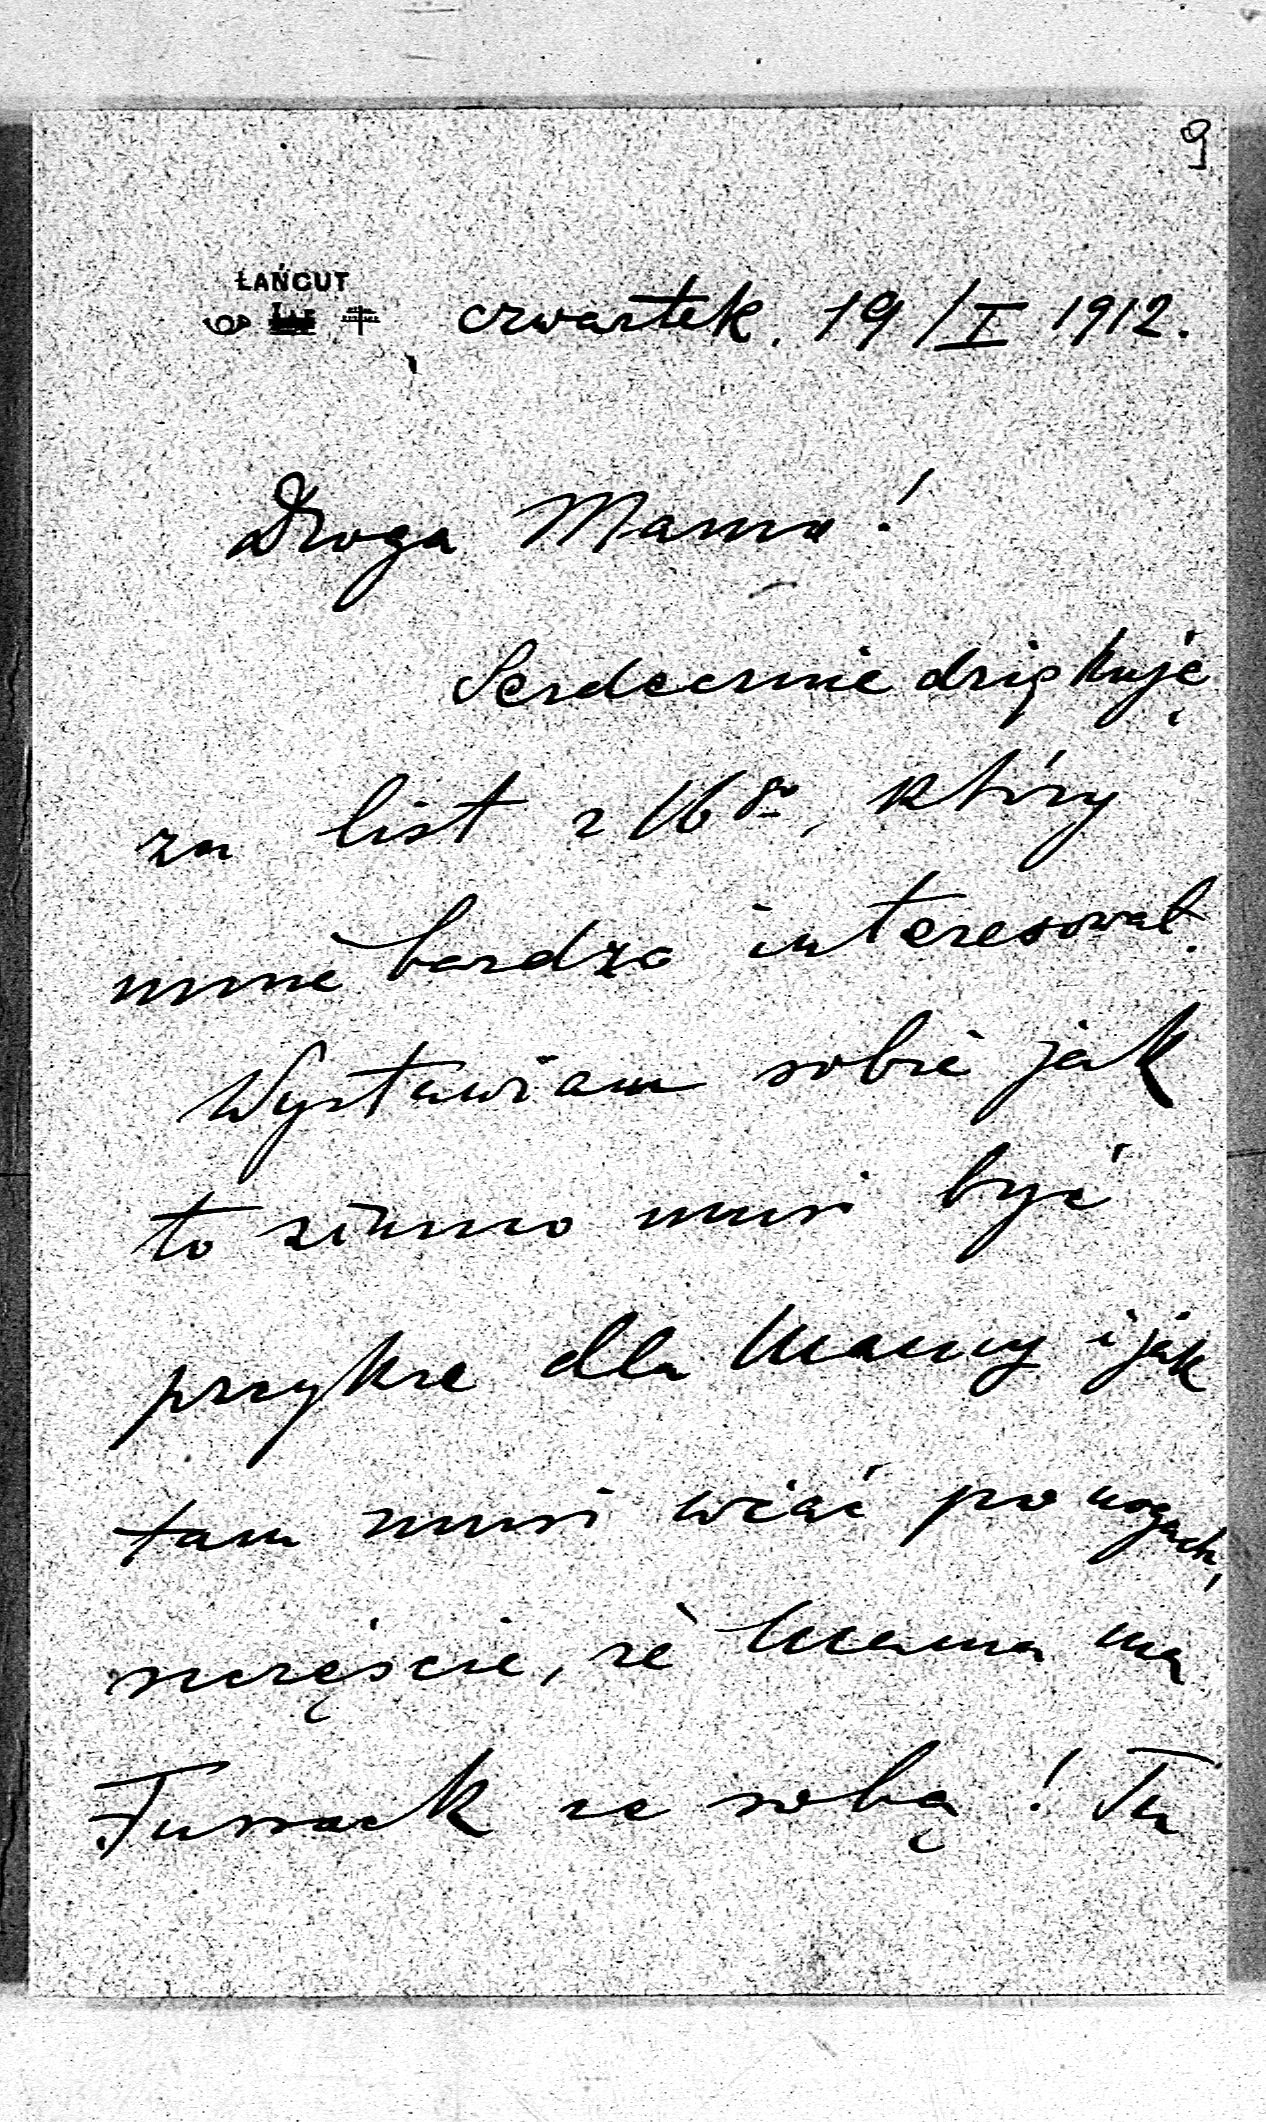 9
ŁAŃCUT
czwartek. 19/I 1912.
Droga Mamo!
Serdecznie dziękuję
za list z 16go, który
mnie bardzo interesował.
Wystawiam sobie jak
to zimno musi być
przykre dla Mamy i jak
tam musi wiać po nogach,
szczęście, że Mama ma
Fussack ze sobą! Tu